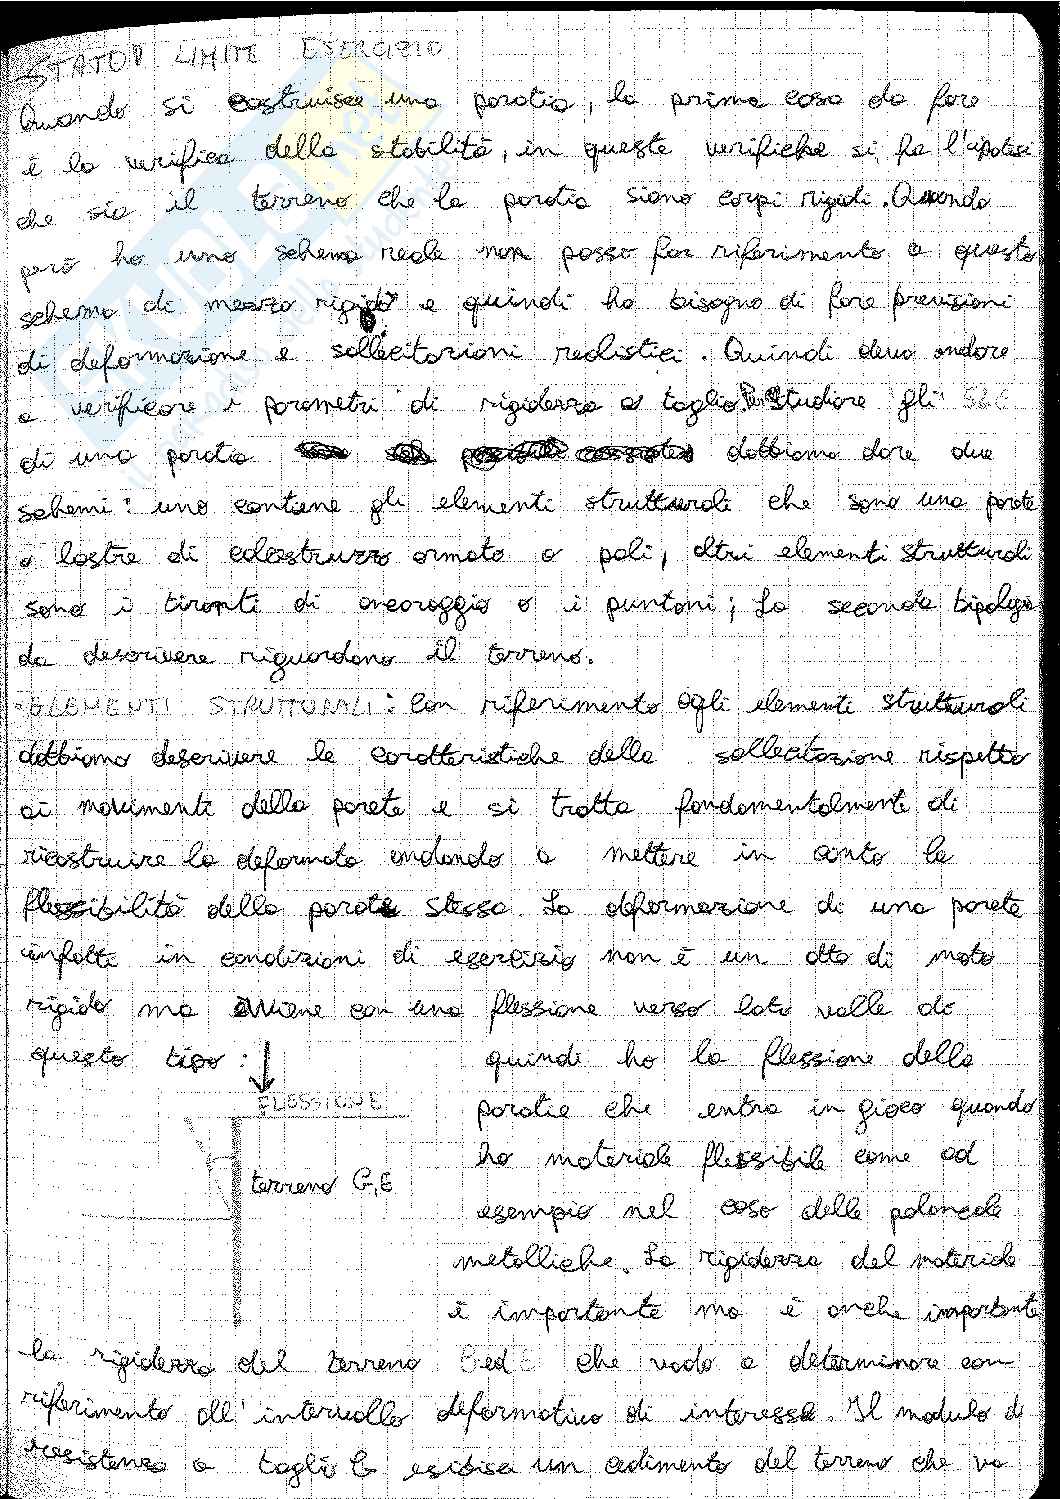 STATO LIMITE ESERCIZIO
Quando si costruisce una paratia, la prima cosa da fare
è la verifica della stabilità, in queste verifiche si fa l'ipotesi
che sia il terreno che la paratia siano corpi rigidi. Quando
però ho uno schema reale non posso far riferimento a questo
schema di mezzo rigido e quindi ho bisogno di fare previsioni
di deformazione e sollecitazioni realistici. Quindi devo andare
a verificare i parametri di rigidezza a taglio. Per studiare gli SLE
di una paratia dobbiamo dare due
schemi: uno contiene gli elementi strutturali che sono una parete
o lastre di calcestruzzo armato o pali, altri elementi strutturali
sono i tiranti di ancoraggio o i puntoni; La seconda tipologia
da descrivere riguardano il terreno.
-ELEMENTI STRUTTURALI: Con riferimento agli elementi strutturali
dobbiamo descrivere le caratteristiche della sollecitazione rispetto
ai movimenti della parete e si tratta fondamentalmente di
ricostruire la deformata andando a mettere in conto la
flessibilità della parete stessa. La deformazione di una parete
infatti in condizioni di esercizio non è un atto di moto
rigido ma avviene con una flessione verso lato valle di
questo tipo: quindi ho la flessione della
FLESSIONE
paratia che entra in gioco quando
ho materiale flessibile come ad
terreno G,E
esempio nel caso delle palancole
metalliche. La rigidezza del materiale
è importante ma è anche importante
la rigidezza del terreno G ed E che vado a determinare con
riferimento all'intervallo deformativo di interesse. Il modulo di
resistenza a taglio G esibisce un cedimento del terreno che va